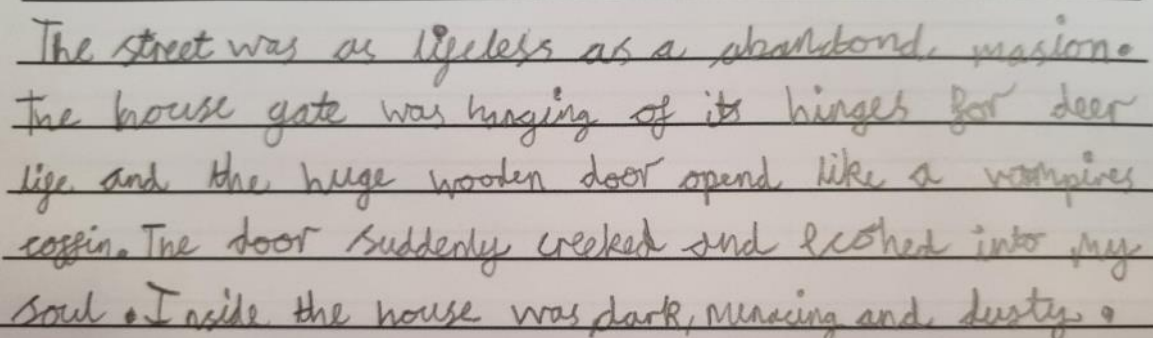 The street was as lifeless as a abandond masion.
The house gate was hanging of its hinges for deer
life and the huge wooden door opend like a vampires
coffin. The door suddenly creeked and ecohed into my
soul. Inside the house was dark, menacing and dusty.